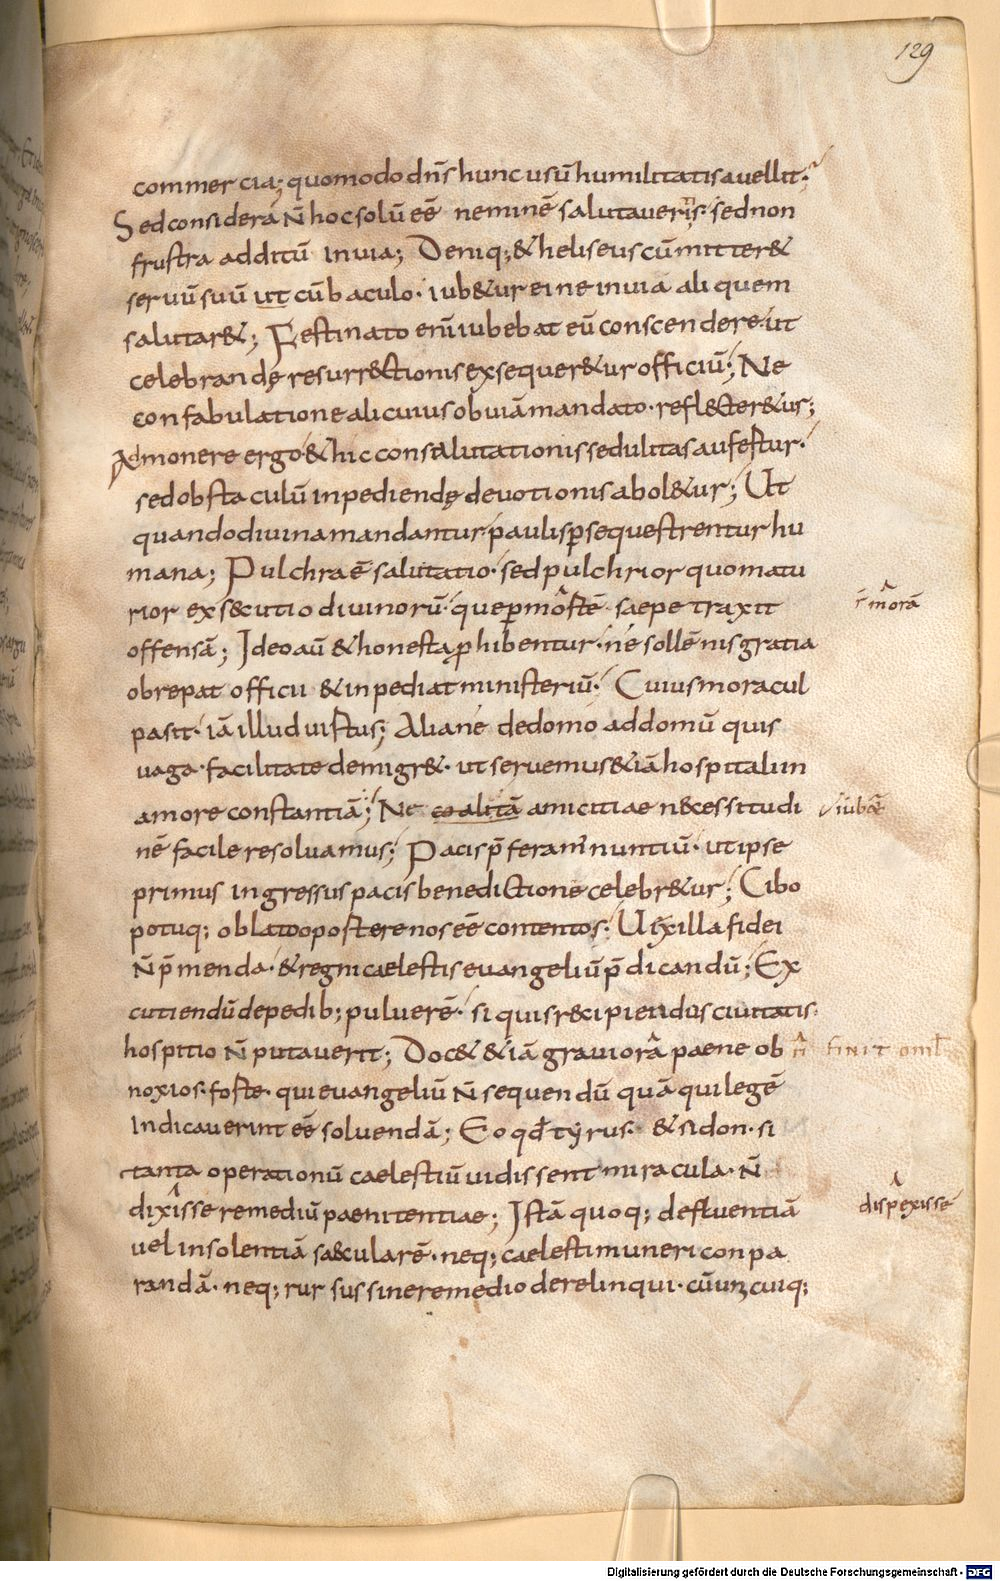 129
commercia; quomodo dn̄s hunc usū humilitatis avellit;
Sed considerā n̄ hoc solū eē neminē salutaveris. sed non
frustra additū in via; Deniq; & heliseus cū mitter&
servū suū ut cū baculo. iub&ur ei ne in viā aliquem
salutar&; Festinato enī iubebat eū conscendere ut
celebrandę resurr&ctionis exsequer&ur officiū; Ne
confabulatione alicuius obviā mandato. refl&cter&ur;
Admonere ergo & hic consalutationis sedulitas aufertur.
sed obstaculū inpediendę devotionis abol&ur; Ut
quando divina mandantur paulisp̱ sequestrentur hu
mana; Pulchra ē salutatio. sed pulchrior quo matu
rior exsecutio divinorū. que p̱ mōstē saepe traxit
r̄ morā
offensā; Ideo aū & honesta p̱hibentur. ne sollēnis gratia
obrepat officii & inpediat ministeriū; Cuius mora cul
pa sit. iā illud vistus; Aliane de domo ad domū quis
vaga facilitate demigr&. ut servemus & iā hospitali in
amore constantiā; Ne coalitā amicitiae necessitudi
nē facile resolvamus; Pacis p̄feram nuntiū. ut ipse
primus ingressus pacis benedictione celebr&ur; Cibo
potuq; oblato oportere nos eē contentos; Vexilla fidei
n̄ p̄menda. & regni caelestis evangeliū p̄dicandū; Ex
cutiendū de pedib; pulverē. si quis recipiendus civitatis
hospitio n̄ putaverit; Doc& & iā graviorā paene ob
finit omł
noxios foste. qui evangeliū n̄ sequendū quā qui legē
indicaverint eē solvendā; Eo qđ tyrus. & sidon. si
tanta operationū caelestiū vidissent miracula. n̄
dixisse remediū paenitentiae; Istā quoq; defluentiā
dispexissē
vel insolentiā saecularē. neq; caelesti muneri conpa
randā. neq; rursus sine remedio derelinqui. cū unicuiq;
Digitalisierung gefördert durch die Deutsche Forschungsgemeinschaft - DFG